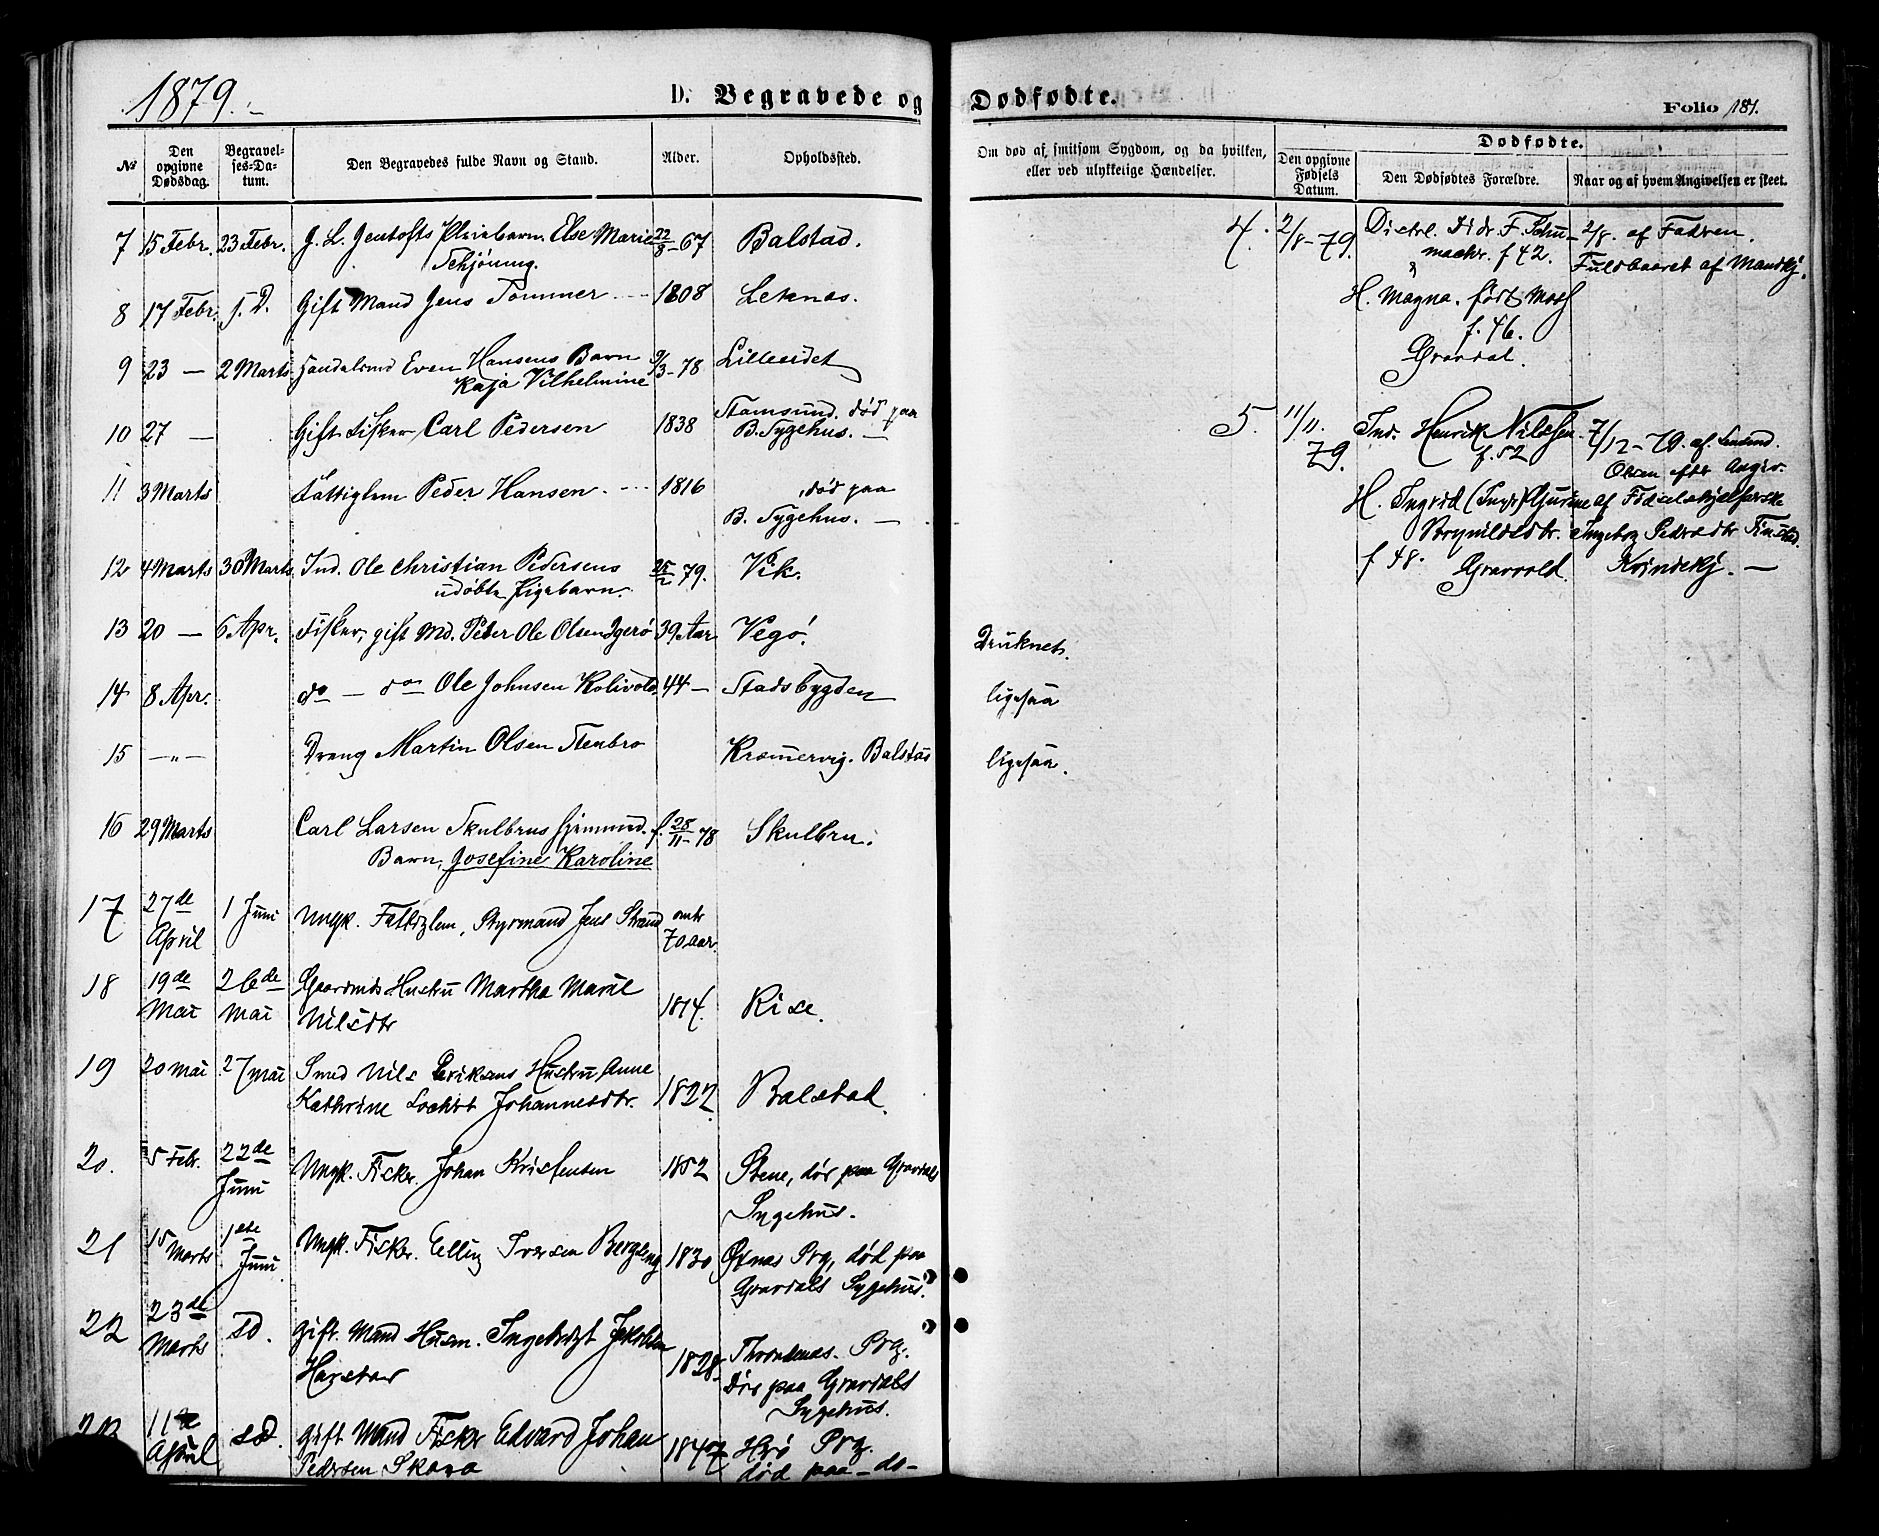 1879.
D. Begravede og Dødfødte.
Folio 181.
№
Den opgivne Dødsdag.
Begravelses-Datum.
Den Begravedes fulde Navn og Stand.
Alder.
Opholdssted.
Om død af smitsom Sygdom, og da hvilken, eller ved ulykkelige Hændelser.
Den opgivne Fødsels Datum.
Dødfødte.
Den Dødfødtes Forældre.
Naar og af hvem Angivelsen er skeet.
7 15 Febr. 23 Febr. J. L. Jentofts Pleiebarn Else Marie 22/8-67 Balstad.
Schjøning.
8 17 Febr. s. D. Gift Mand Jens Tommer 1808 Leknæs.
9 23 — 2 Marts Handelsmd Even Hansens Barn 9/3-78 Lilleeidet
Kaja Vilhelmine
10 27 — Gift Fisker Carl Pedersen 1838 Stamsund. død paa
B. Sygehus. —
11 3 Marts Fattiglem Peder Hansen 1816 død paa
B. Sygehus. —
12 4 Marts 30 Marts Ind. Ole Christian Pedersens 25/2 79. Vik.
udøbte Pigebarn.
13 20 — 6 Apr. Fisker, gift Md. Peter Ole Olsen Igerø 39 Aar Vegø. Druknet.
14 8 Apr. do — do Ole Johnsen Kolivold 44 — Stadsbygden ligesaa
15 —„— Dreng Martin Olsen Stenbro Kræmervig. Balstad ligesaa.
16 29 Marts Carl Larsen Skulbrus f. 28/11-78 Skulbru.
Barn, Josefine Karoline
17 27de April 1 Juni Ungk. Fattiglem, Styrmand Jens Strand omtr 70 aar.
18 19de Mai 26de Mai Gaardmds Hustru Martha Marie 1814. Rise.
Nilsdtr
19 20 Mai 27 Mai Smed Nils Eriksens Hustru Anne
Kathrine Lockert Johannesdtr. 1822 Balstad.
20. 5 Febr. 22de Juni Ungk. Fisker. Johan Kristensen 1852 Stene, død paa Gravdals
Sygehus.
21 15 Marts 1ste Juni Ungk. Fisker. Elling Iversen Bergseng 1830 Øxnæs Prg, død paa
Gravdals Sygehus.
22 23de Marts sd. Gift. Mand Husm. Ingebrigt Jakobsen 1828. Throndenæs. Prg.
Harstad Død paa Gravdals
Sygehus.
11te April sd. Gift Mand Fisker Edvard Johan 1847 Herø Prg.
Pedersen Skara død paa — do —
4. 2/8-79. Distrl. Didr. F. Schu-
macher. f 42.
H. Magna. født Moss
f. 46.
Gravdal.
2/8. af Fadren.
Fuldbaaret af Mandkj.
5. 11/11. 79. Ind. Henrik Nilssen.
f. 52
H. Ingrid Gurine
Brynildsdtr.
f 48. Gravvold.
7/12-79. af
Olsen efter Angiv.
af Fødselshjelperske
Ingeborg Pedersdtr Finstad.
Kvindekj. —